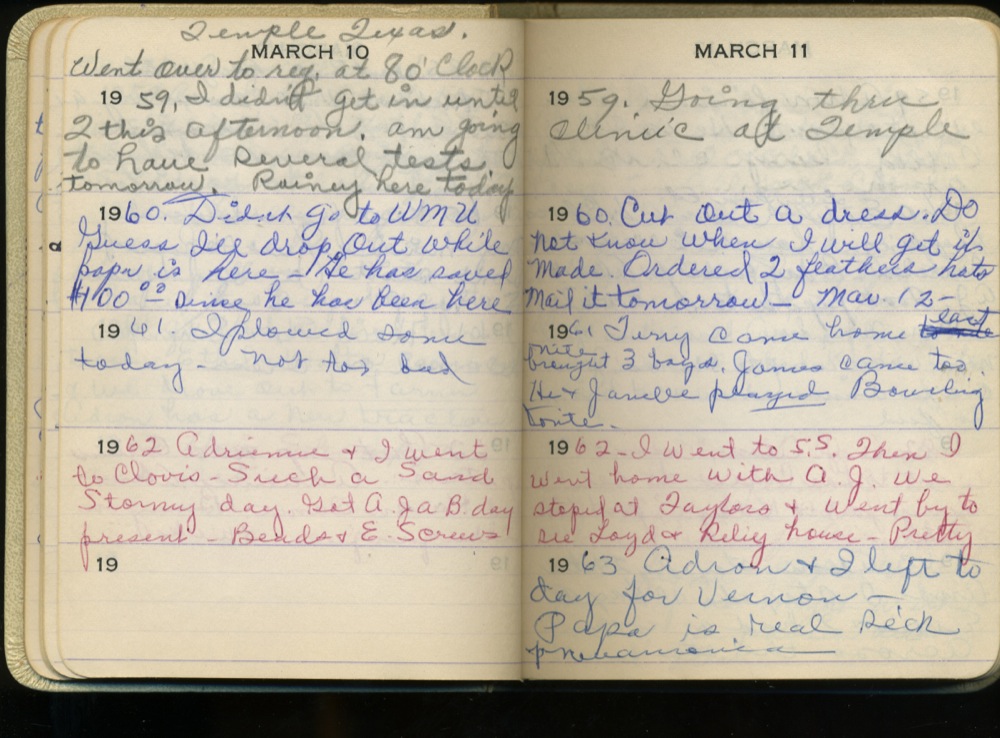 Temple Texas.
MARCH 10
Went over to reg. at 80' Clock
19 59, I didn't get in until
2 this afternoon. am going
to have several tests
tomorrow. Rainey here today
1960. Didn't go to WMU
Guess I'll drop out while
papa is here - He has saved
$100 00 since he has been here
1961. I plowed some
today - not too bad
1962 Adrienne & I went
to Clovis - Such a Sand
Stormy day. Got A. J a B. day
present - Beads & E. Screws
19
MARCH 11
1959. Going thru
clinic at Temple
1960. Cut out a dress. Do
not know when I will get it
made. Ordered 2 feathers hats
Mail it tomorrow - Mar. 12 -
1961 Terry came home last
nite
brought 3 boys. James came too
He & Janelle played Bowling
tonite.
1962 - I went to S.S. Then I
went home with A. J. We
stoped at Taylors & went by to
see Loyd & house - Pretty
1963 Adron & I left to
day for Vernon -
Papa is real sick
pneuamonia